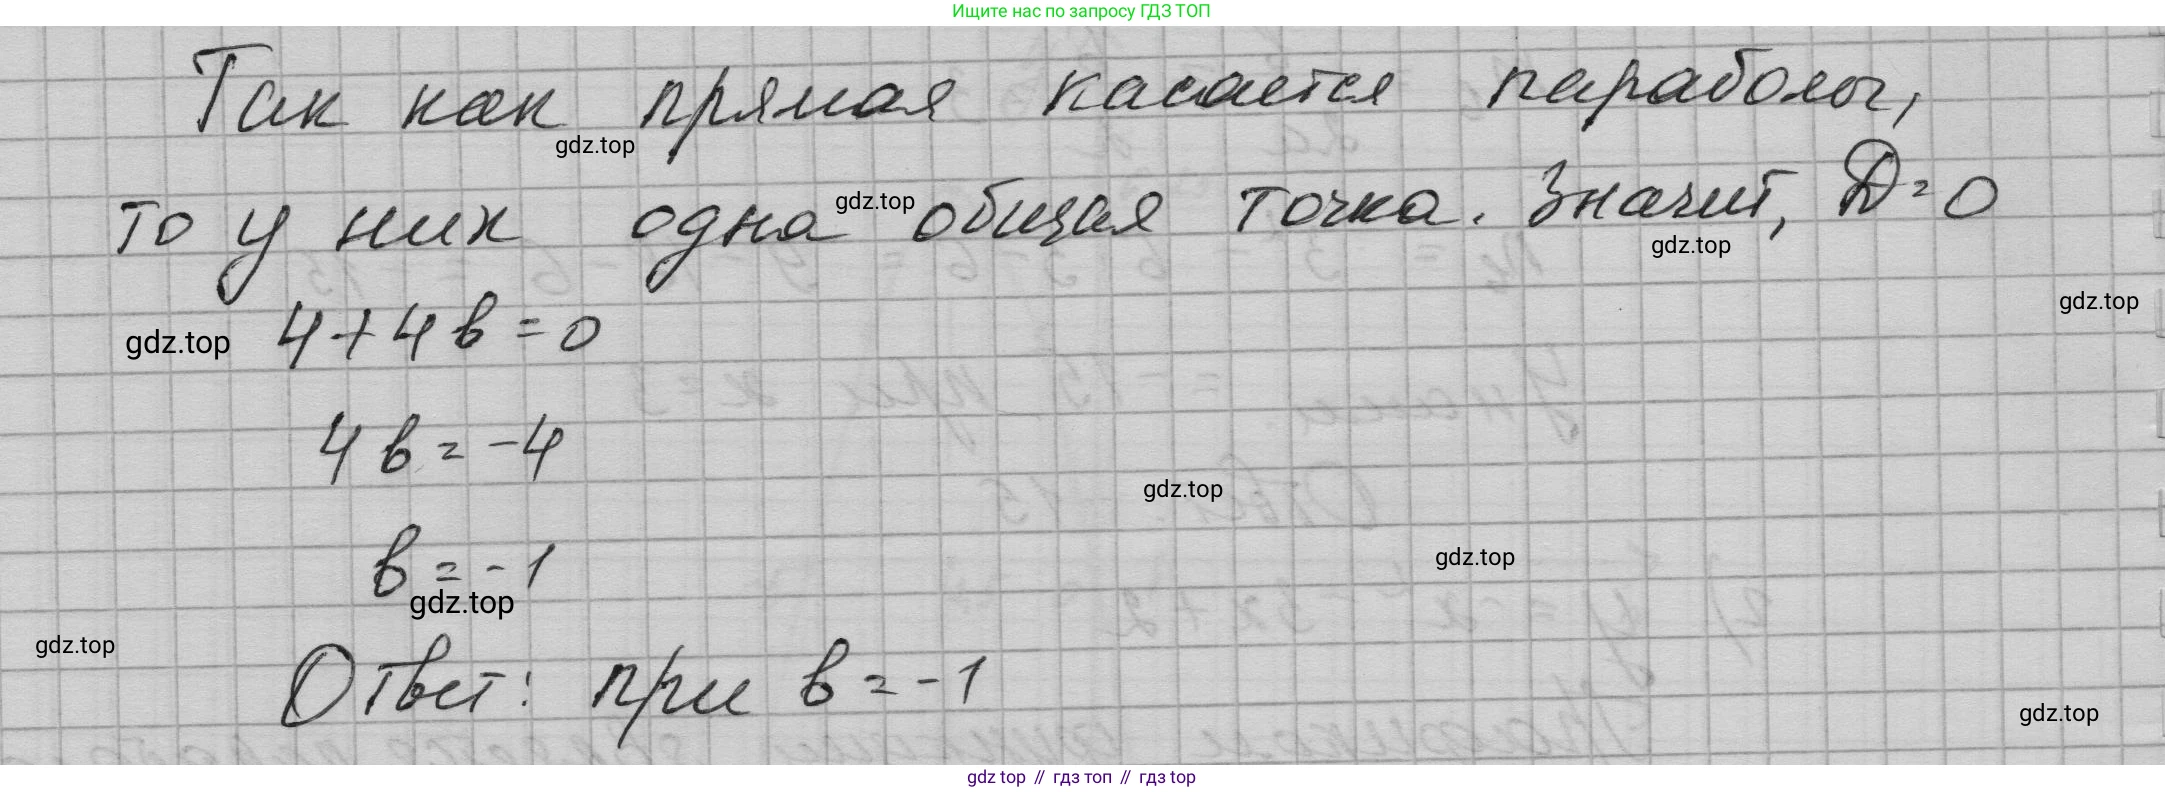 Ищите нас по запросу ГДЗ ТОП
Так как прямая касается параболы,
gdz.top
то у них одна gdz.top общая точка. Значит, D=0
gdz.top
gdz.top
gdz.top 4+4в=0
4в=-4
gdz.top
в=-1
gdz.top
gdz.top
gdz.top
Ответ: при в=-1
gdz.top
gdz top // гдз топ // гдз top